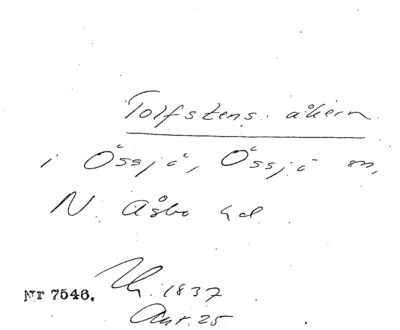 Tolfstens. åkern
i Össjö, Össjö sn,
N. Åsbo hd.
Nr 7546.
1837
25